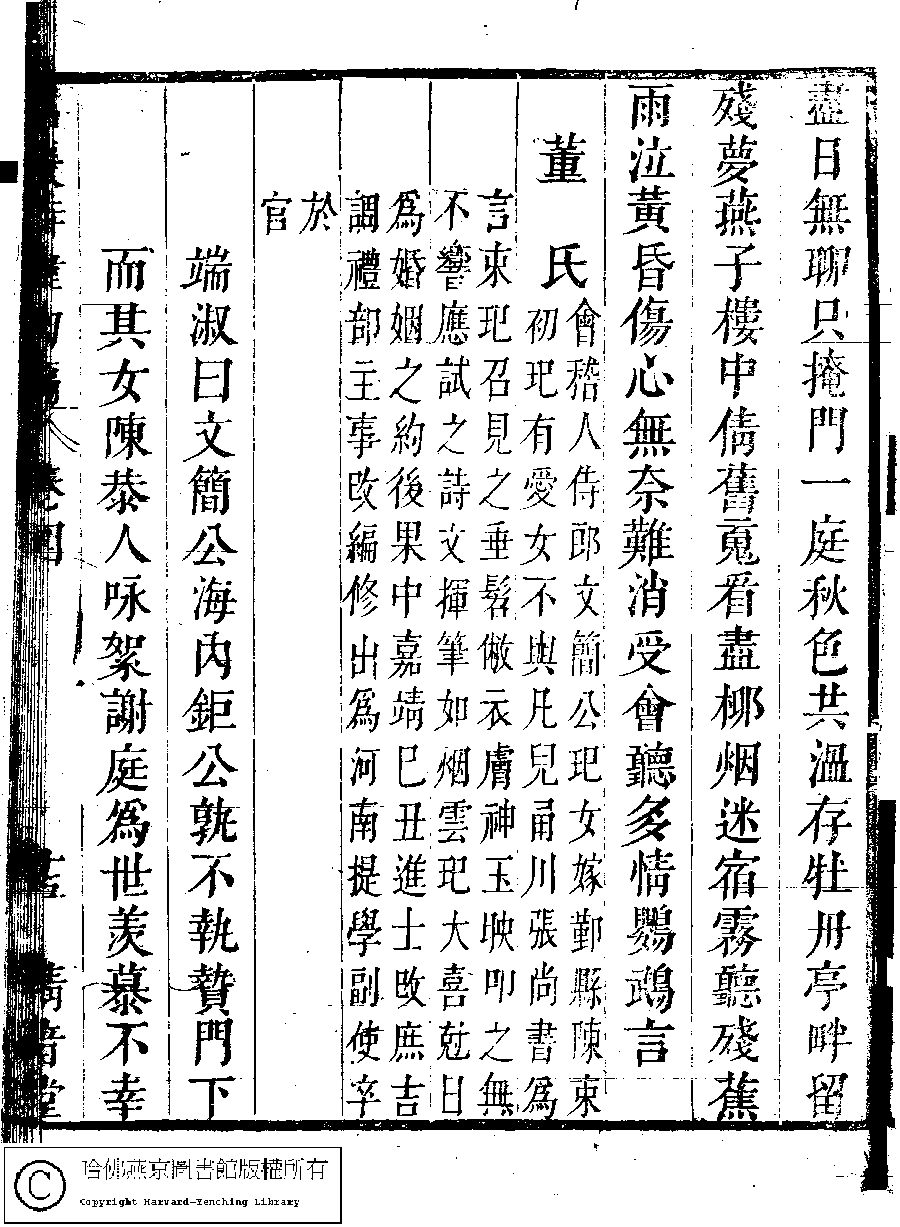 盡日無聊只掩門一庭秋色共溫存牡丹亭畔留
殘夢燕子樓中倩舊䰟看盡栁烟迷宿霧聽殘蕉
雨泣黃昏傷心無奈難消受會聽多情鸚鵡言
董氏
會稽人侍郎文簡公玘女嫁鄞縣陳束
初玘有愛女不與凡兒甬川張尚書爲
言束玘召見之垂髫倣衣膚神玉映叩之無
不響應試之詩文揮筆如烟雲玘大喜尅日
爲婚姻之約後果中嘉靖巳丑進士改庶吉
調禮部主事改編修出爲河南提學副使卒
於
官
端淑曰文簡公海內鉅公孰不執贄門下
而其女陳恭人咏絮謝庭爲世羨慕不幸
卷四
清音堂
哈佛燕京圖書館版權所有
Copyright Harvard-Yenching Library